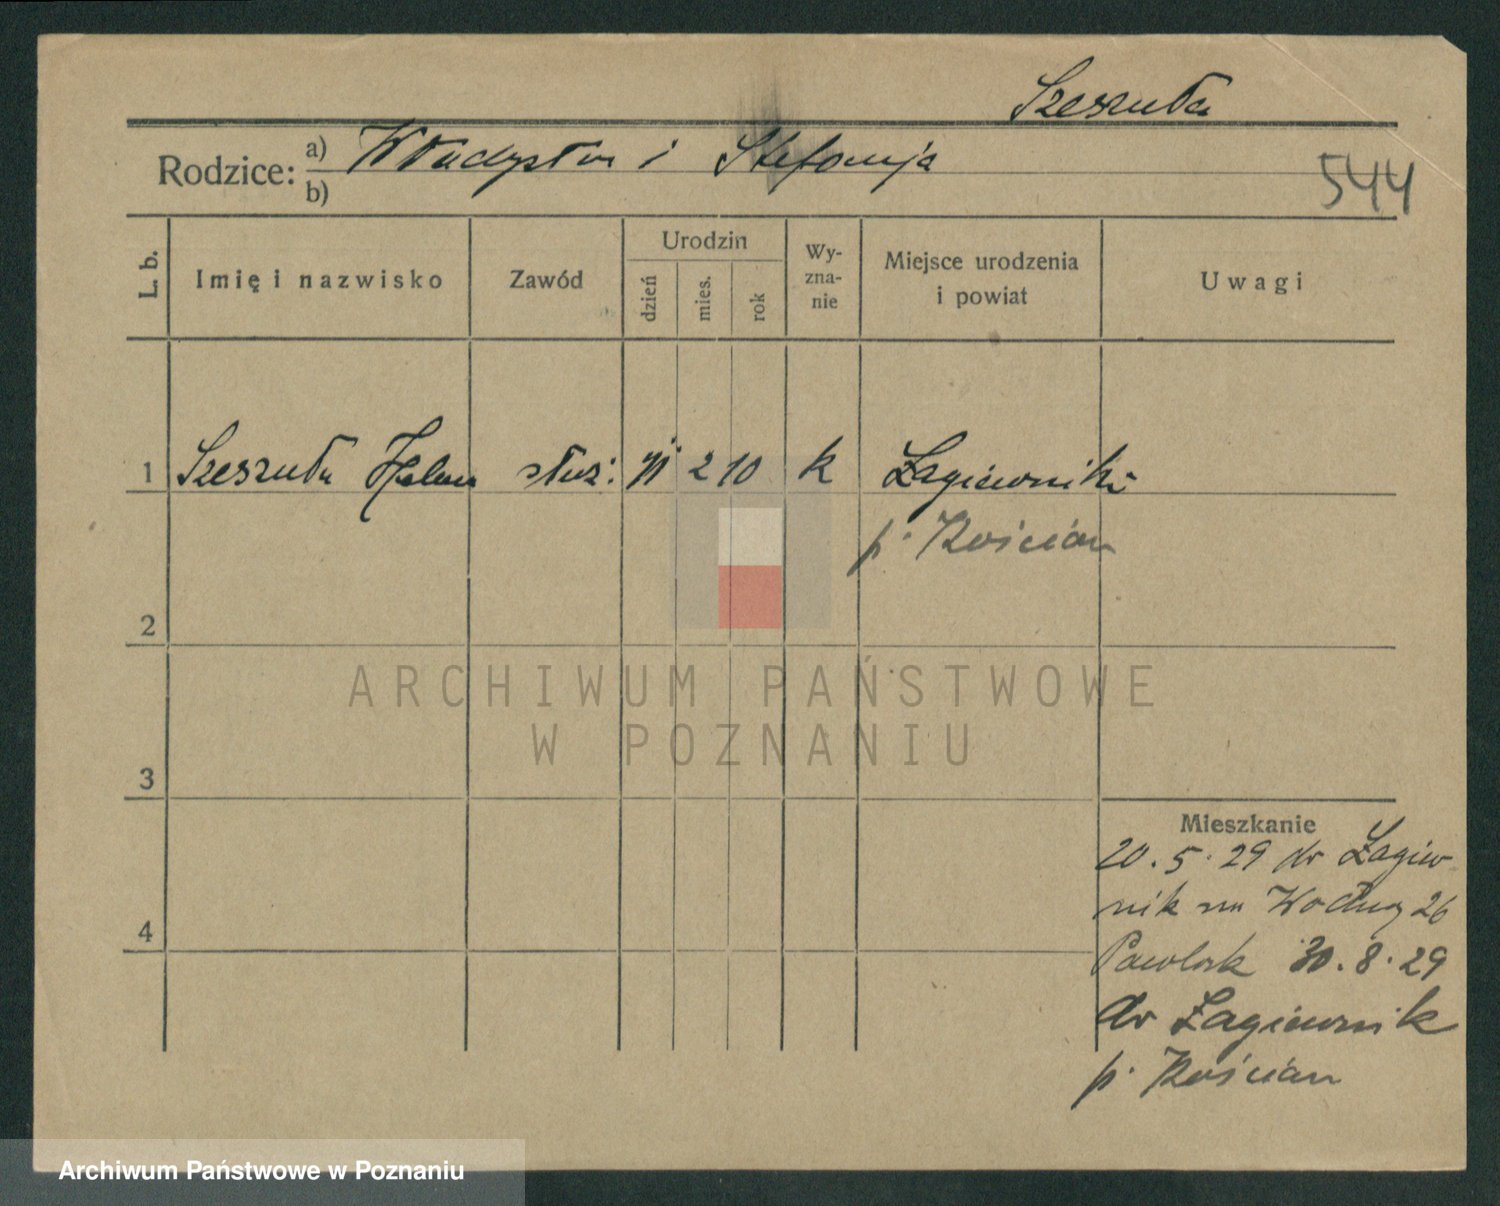 Szeszuła
Rodzice: a) Władysław i Stefanja
b)
544
L. b.
Imię i nazwisko
Zawód
Urodzin
dzień
mies.
rok
Wy-
zna-
nie
Miejsce urodzenia
i powiat
Uwagi
1 Szeszuła Helena służ. 2 10 k Łagiewniki
p. Kościan
2
ARCHIWUM PAŃSTWOWE
W POZNANIU
3
Mieszkanie
20.5.29 do Łagiew
nik na Wodną 26
4
30.8.29
do Łagiewnik
p. Kościan
Archiwum Państwowe w Poznaniu